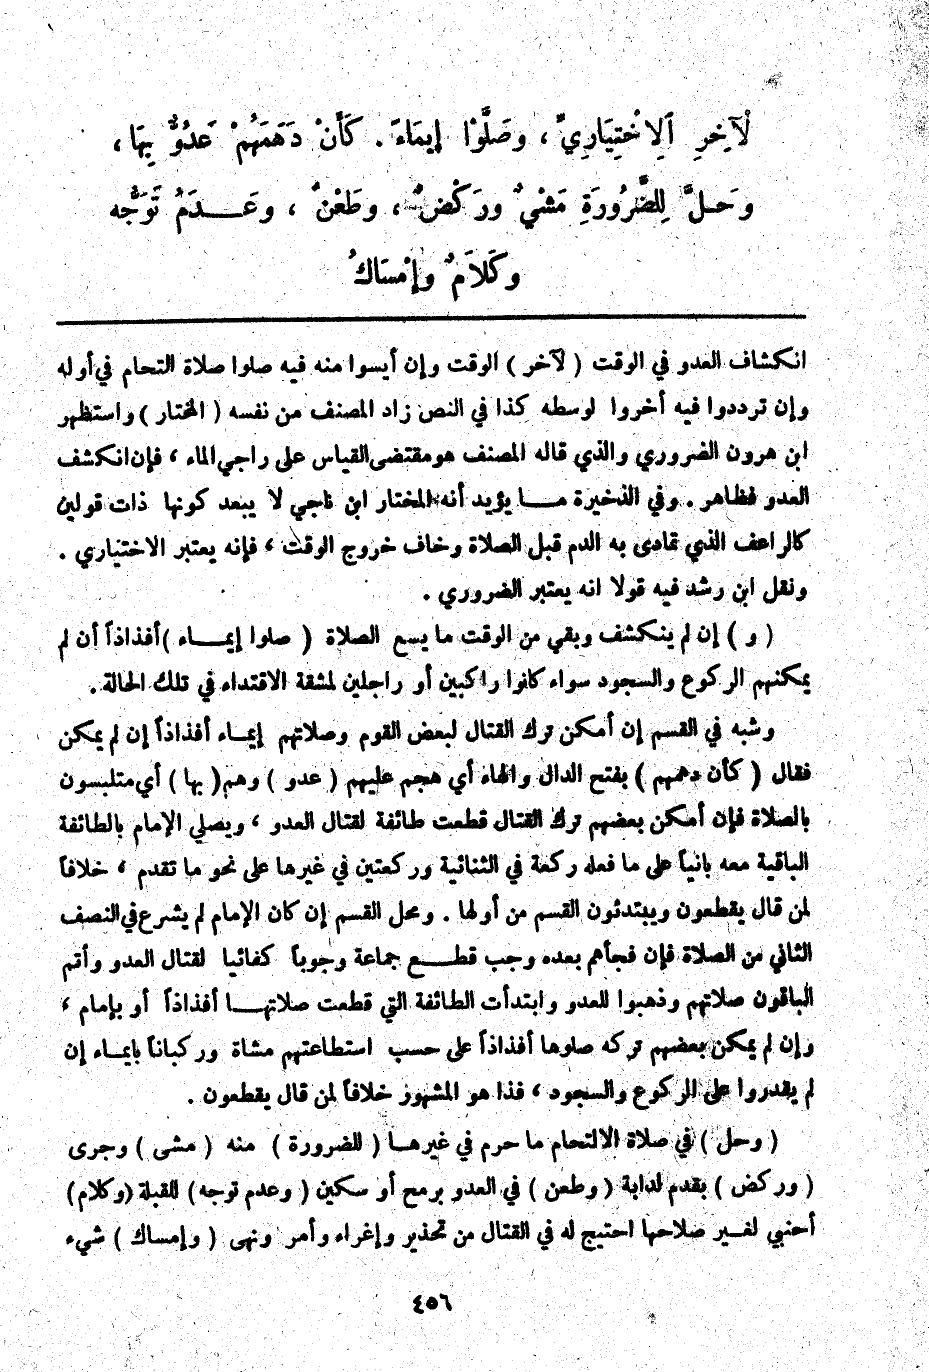 لِآخِرِ اَلِاخْتِيَارِيِّ ، وصَلَّوْا إيمَاءً . كَأَنْ دَهَمَهُمْ عَدُوٌّ بِهَا ،
وَحَـلَّ لِلضَّرُورَةِ مَشْيٌ ورَكْضٌ ، وطَعْنٌ ، وعَـــدَمُ تَوَجُّهِ
وكَلاَمٌ وإمْسَاكُ
انكشاف العدو في الوقت ( لآخر ) الوقت وإن أيسوا منه فيه صلوا صلاة التحام في أوله
وإن ترددوا فيه أخروا لوسطه كذا في النص زاد المصنف من نفسه ( المختار ) واستظهر
ابن هرون الضروري والذي قاله المصنف هو مقتضى القياس على راجي الماء ، فإن انكشف
العدو فظاهر . وفي الذخيرة مـــا يؤيد أنه المختار ابن ناجي لا يبعد كونها ذات قولين
كالراعف الذي تمادى به الدم قبل الصلاة وخاف خروج الوقت ، فإنه يعتبر الاختياري .
ونقل ابن رشد فيه قولا انه يعتبر الضروري .
( و ) إن لم ينكشف وبقي من الوقت ما يسع الصلاة ( صلوا إيمـــاء ) أفذاذاً أن لم
يمكنهم الركوع والسجود سواء كانوا راكبين أو راجلين لمشقة الاقتداء في تلك الحالة .
وشبه في القسم إن أمكن ترك القتال لبعض القوم وصلاتهم إيمـاء أفذاذاً إن لم يمكن
فقال ( كأن دهمهم ) بفتح الدال والهاء أي هجم عليهم ( عدو ) وهم ( بها ) أي متلبسون
بالصلاة فإن أمكن بعضهم ترك القتال قطعت طائفة لقتال العدو ، ويصلي الإمام بالطائفة
الباقية معه بانياً على ما فعله ركعة في الثنائية وركعتين في غيرها على نحو ما تقدم ، خلافاً
لمن قال يقطعون ويبتدئون القسم من أولها . ومحل القسم إن كان الإمام لم يشرع في النصف
الثاني من الصلاة فإن فجأهم بعده وجب قطـــع جماعة وجوباً كفائيا لقتال العدو وأتم
الباقون صلاتهم وذهبوا للعدو وابتدأت الطائفة التي قطعت صلاتهـــا أفذاذاً أو بإمام ،
وإن لم يمكن بعضهم تركه صلوها أفذاذاً على حسب استطاعتهم مشاة وركباناً بإيمـاء إن
لم يقدروا على الركوع والسجود ، فذا هو المشهور خلافاً لمن قال يقطعون .
( وحل ) في صلاة الالتحام ما حرم في غيرهـا ( للضرورة ) منه ( مشى ) وجرى
( وركض ) بقدم لدابة ( وطعن ) في العدو برمح أو سكين ( وعدم توجه ) للقبلة ( وكلام )
أحنبي لغـير صلاحها احتيج له في القتال من تحذير وإغراء وأمر ونهى ( وإمساك ) شيء
٤٥٦